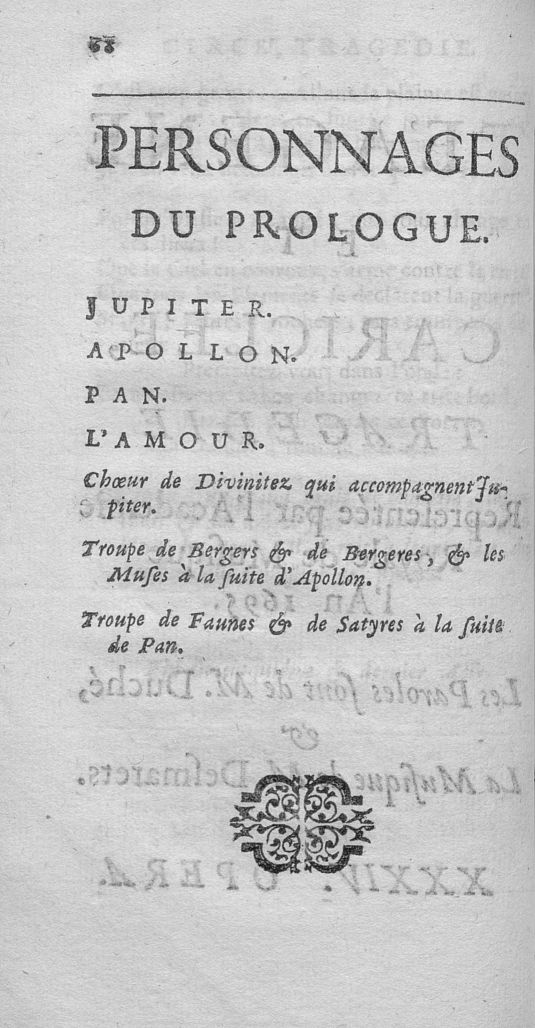 68
PERSONNAGES
DU PROLOGUE.
JUPITER.
APOLLON.
PAN.
L'AMOUR.
Chœur de Divinitez qui accompagnent Ju-
piter.
Troupe de Bergers & de Bergeres, & les
Muſes à la ſuite d'Apollon.
Troupe de Faunes & de Satyres à la ſuite
de Pan.